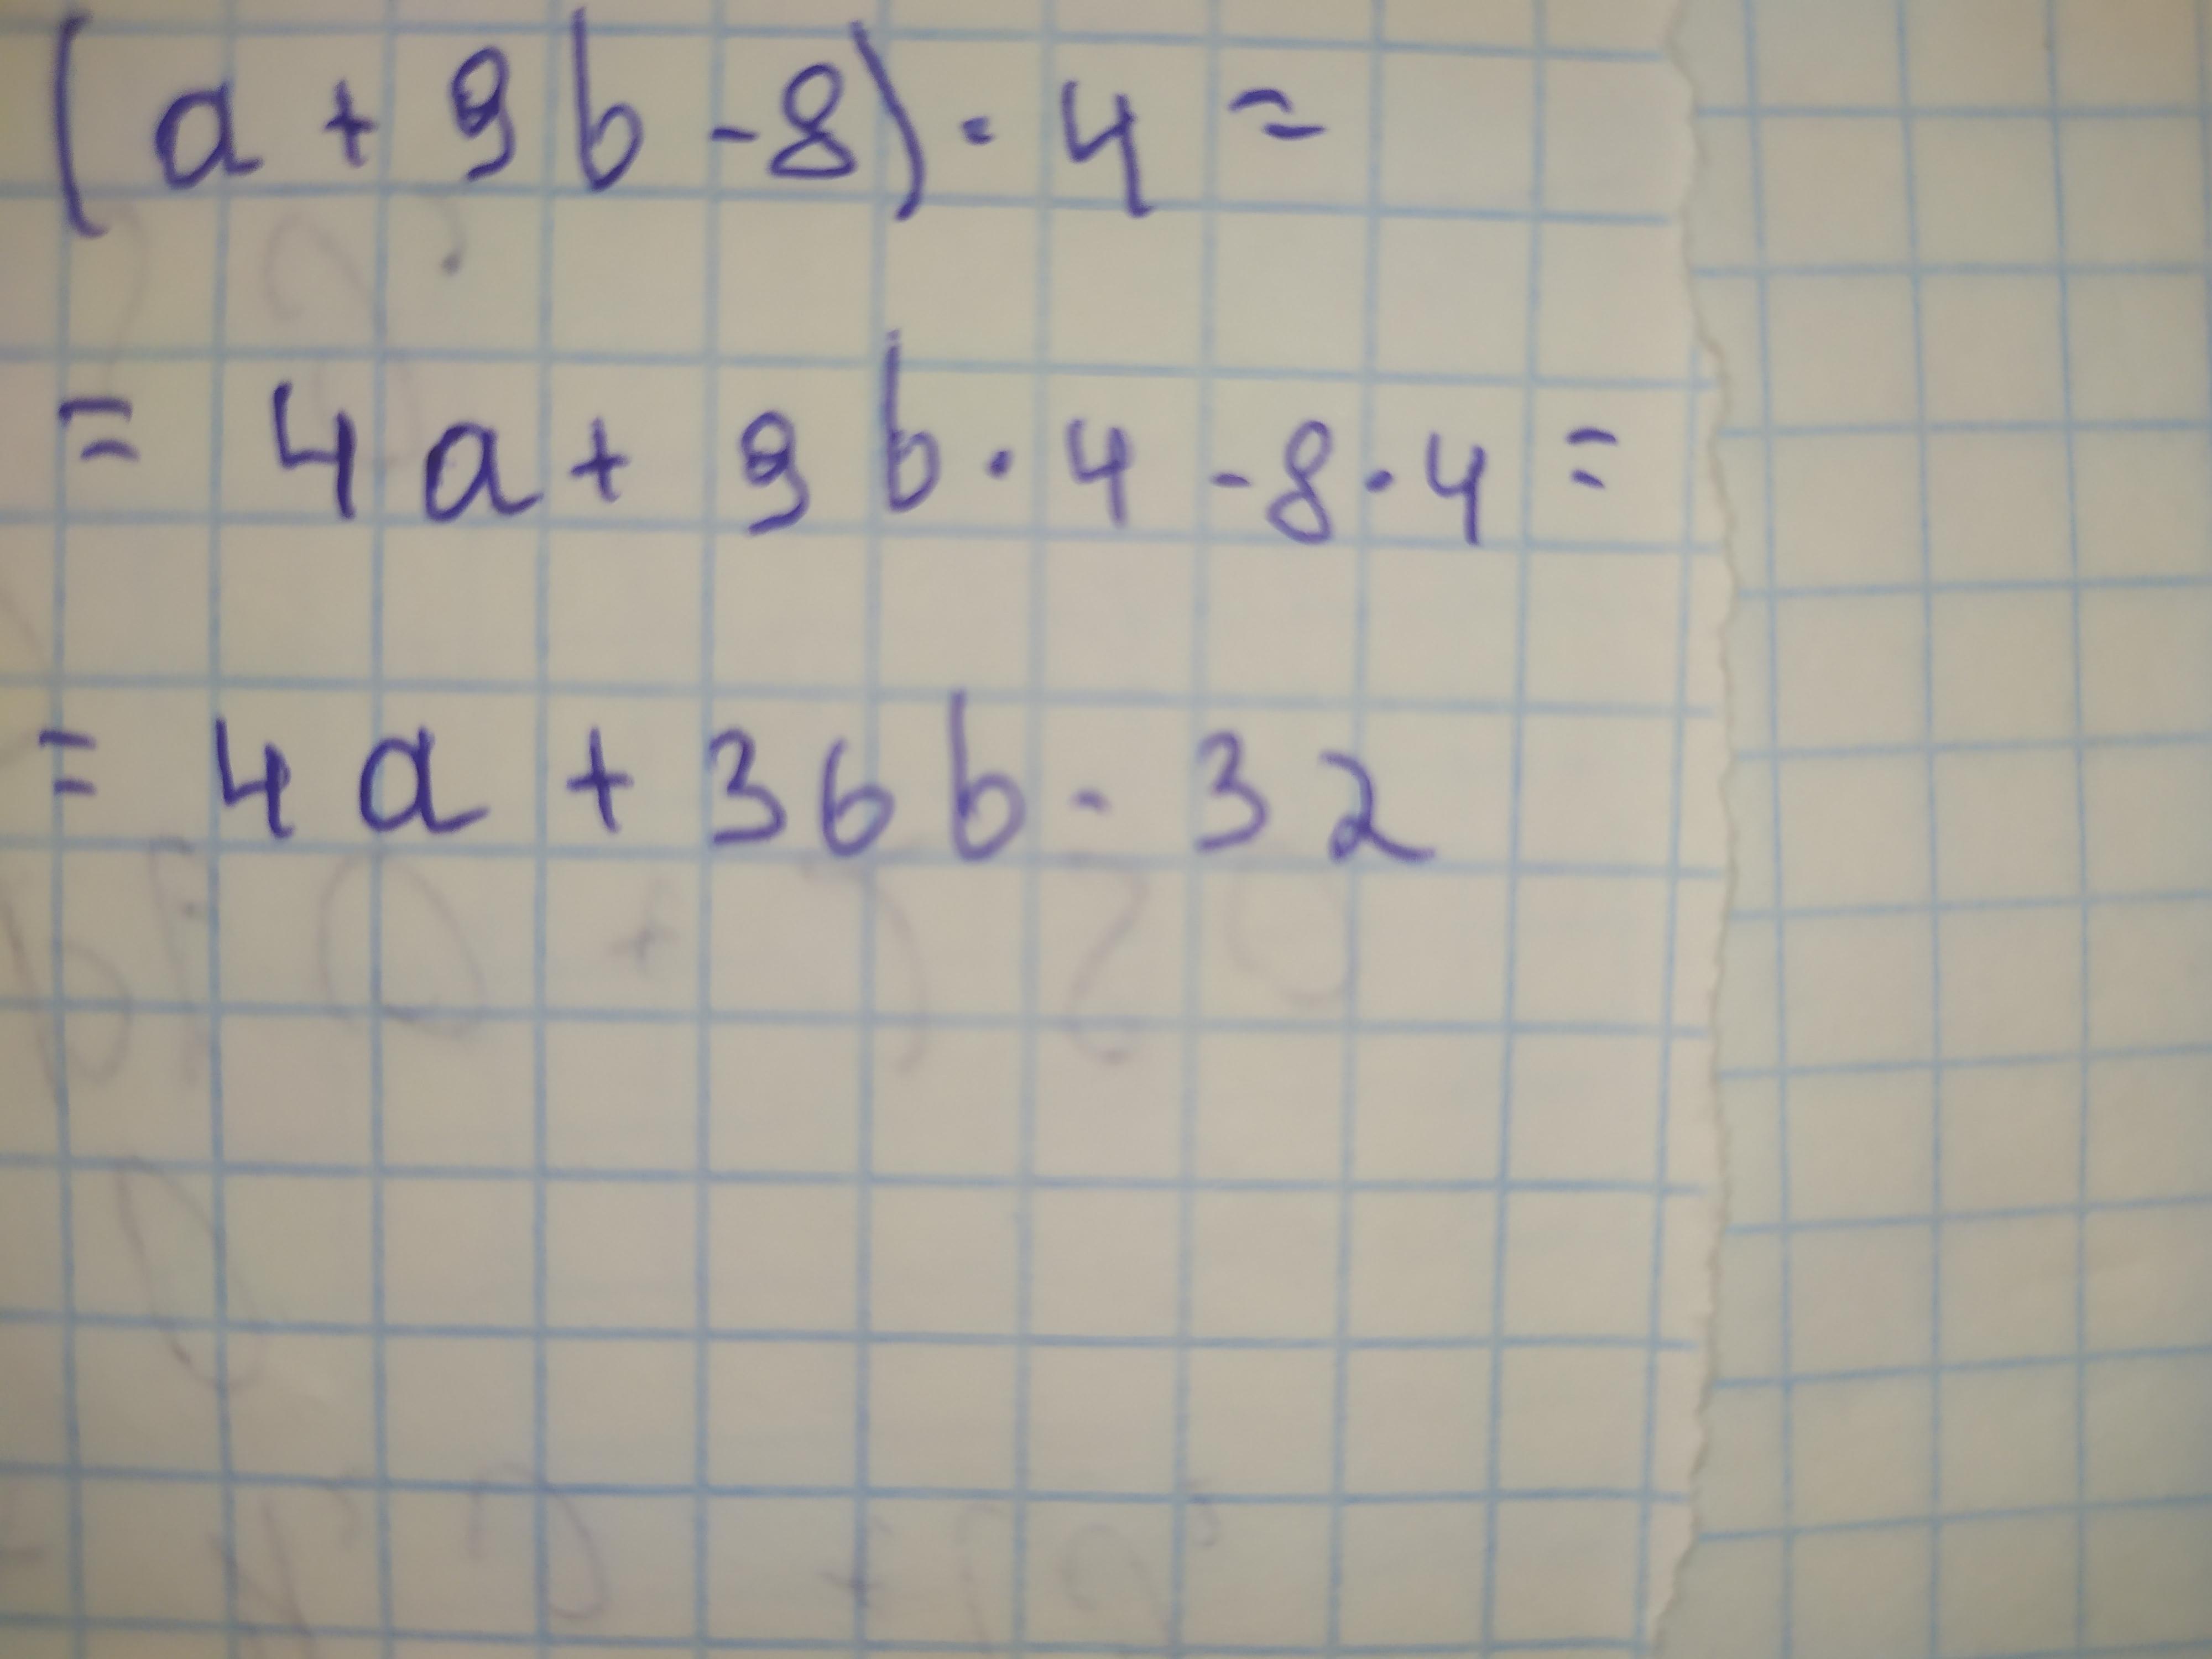 (a + 9b - 8) · 4 =
= 4a + 9b · 4 - 8 · 4 =
= 4a + 36b - 32